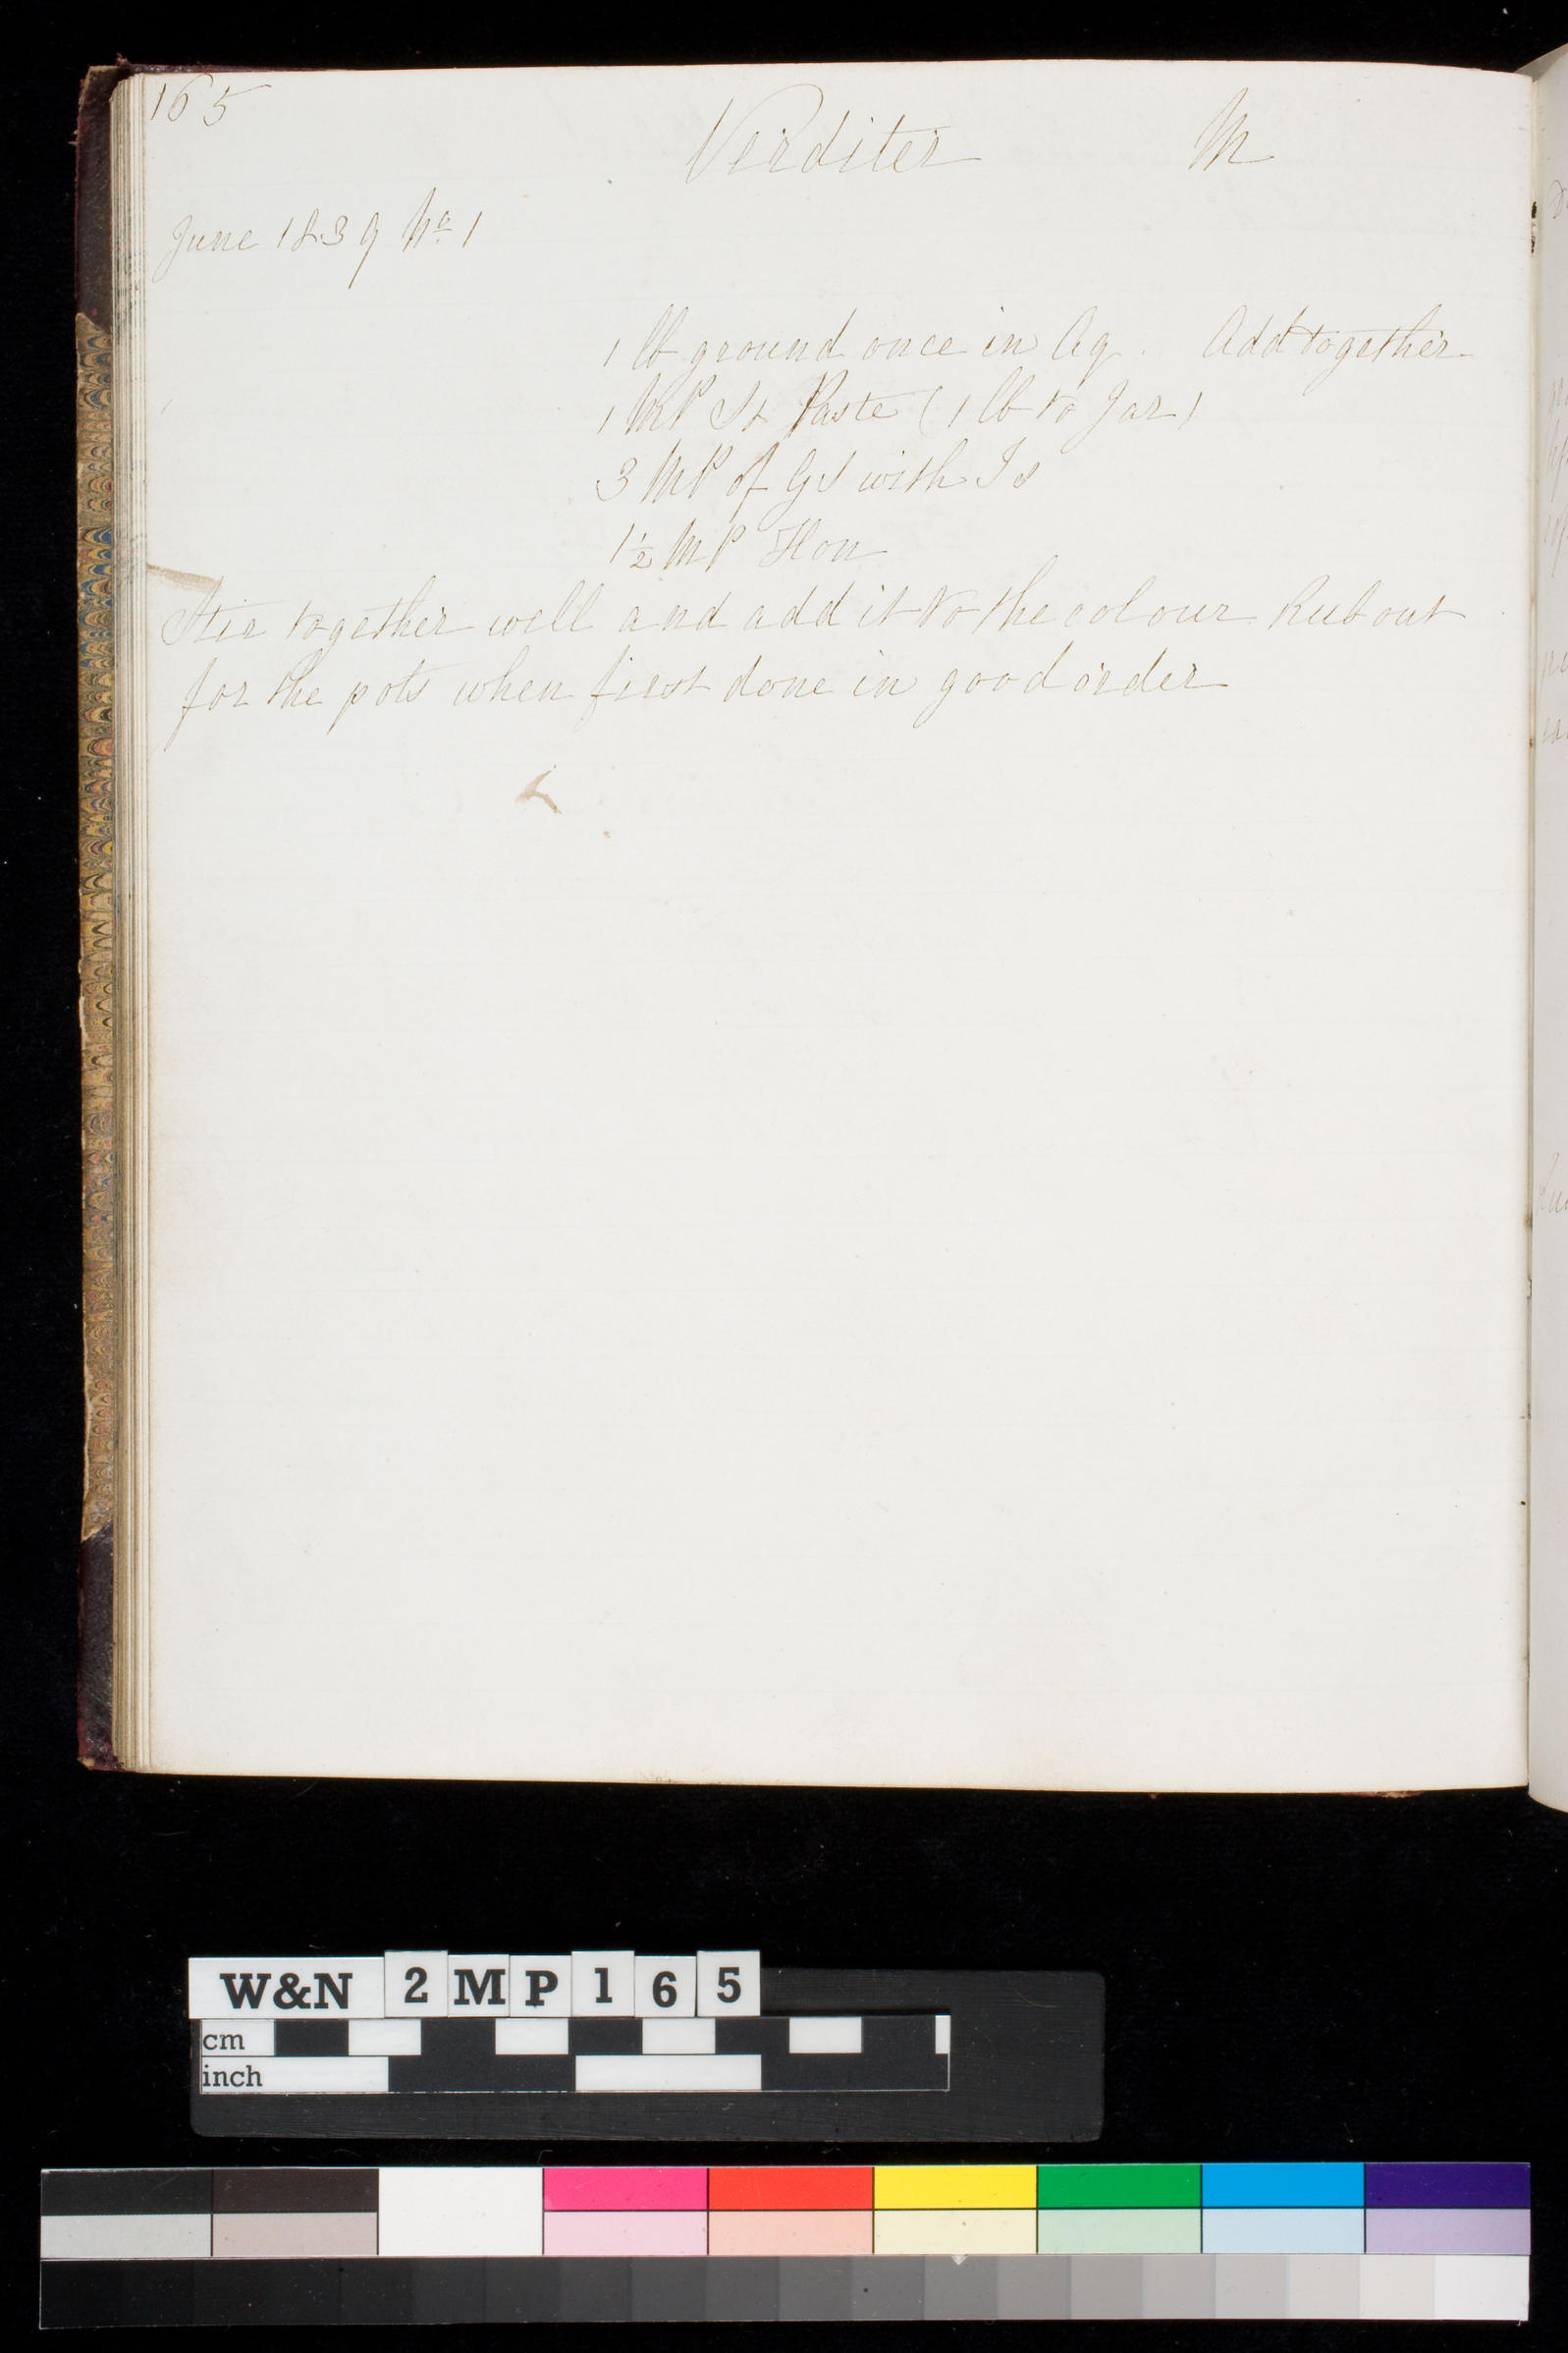 165
Verditer M
June 1839 No 1
1 lb ground once in Aq. Add together
1 MP St Paste (1 lb to Jar)
3 MP of GS with Is
1½ MP Hon
Stir together well and add it to the colour Rub out
for the pots when first done in good order
W&N 2MP165
cm
inch